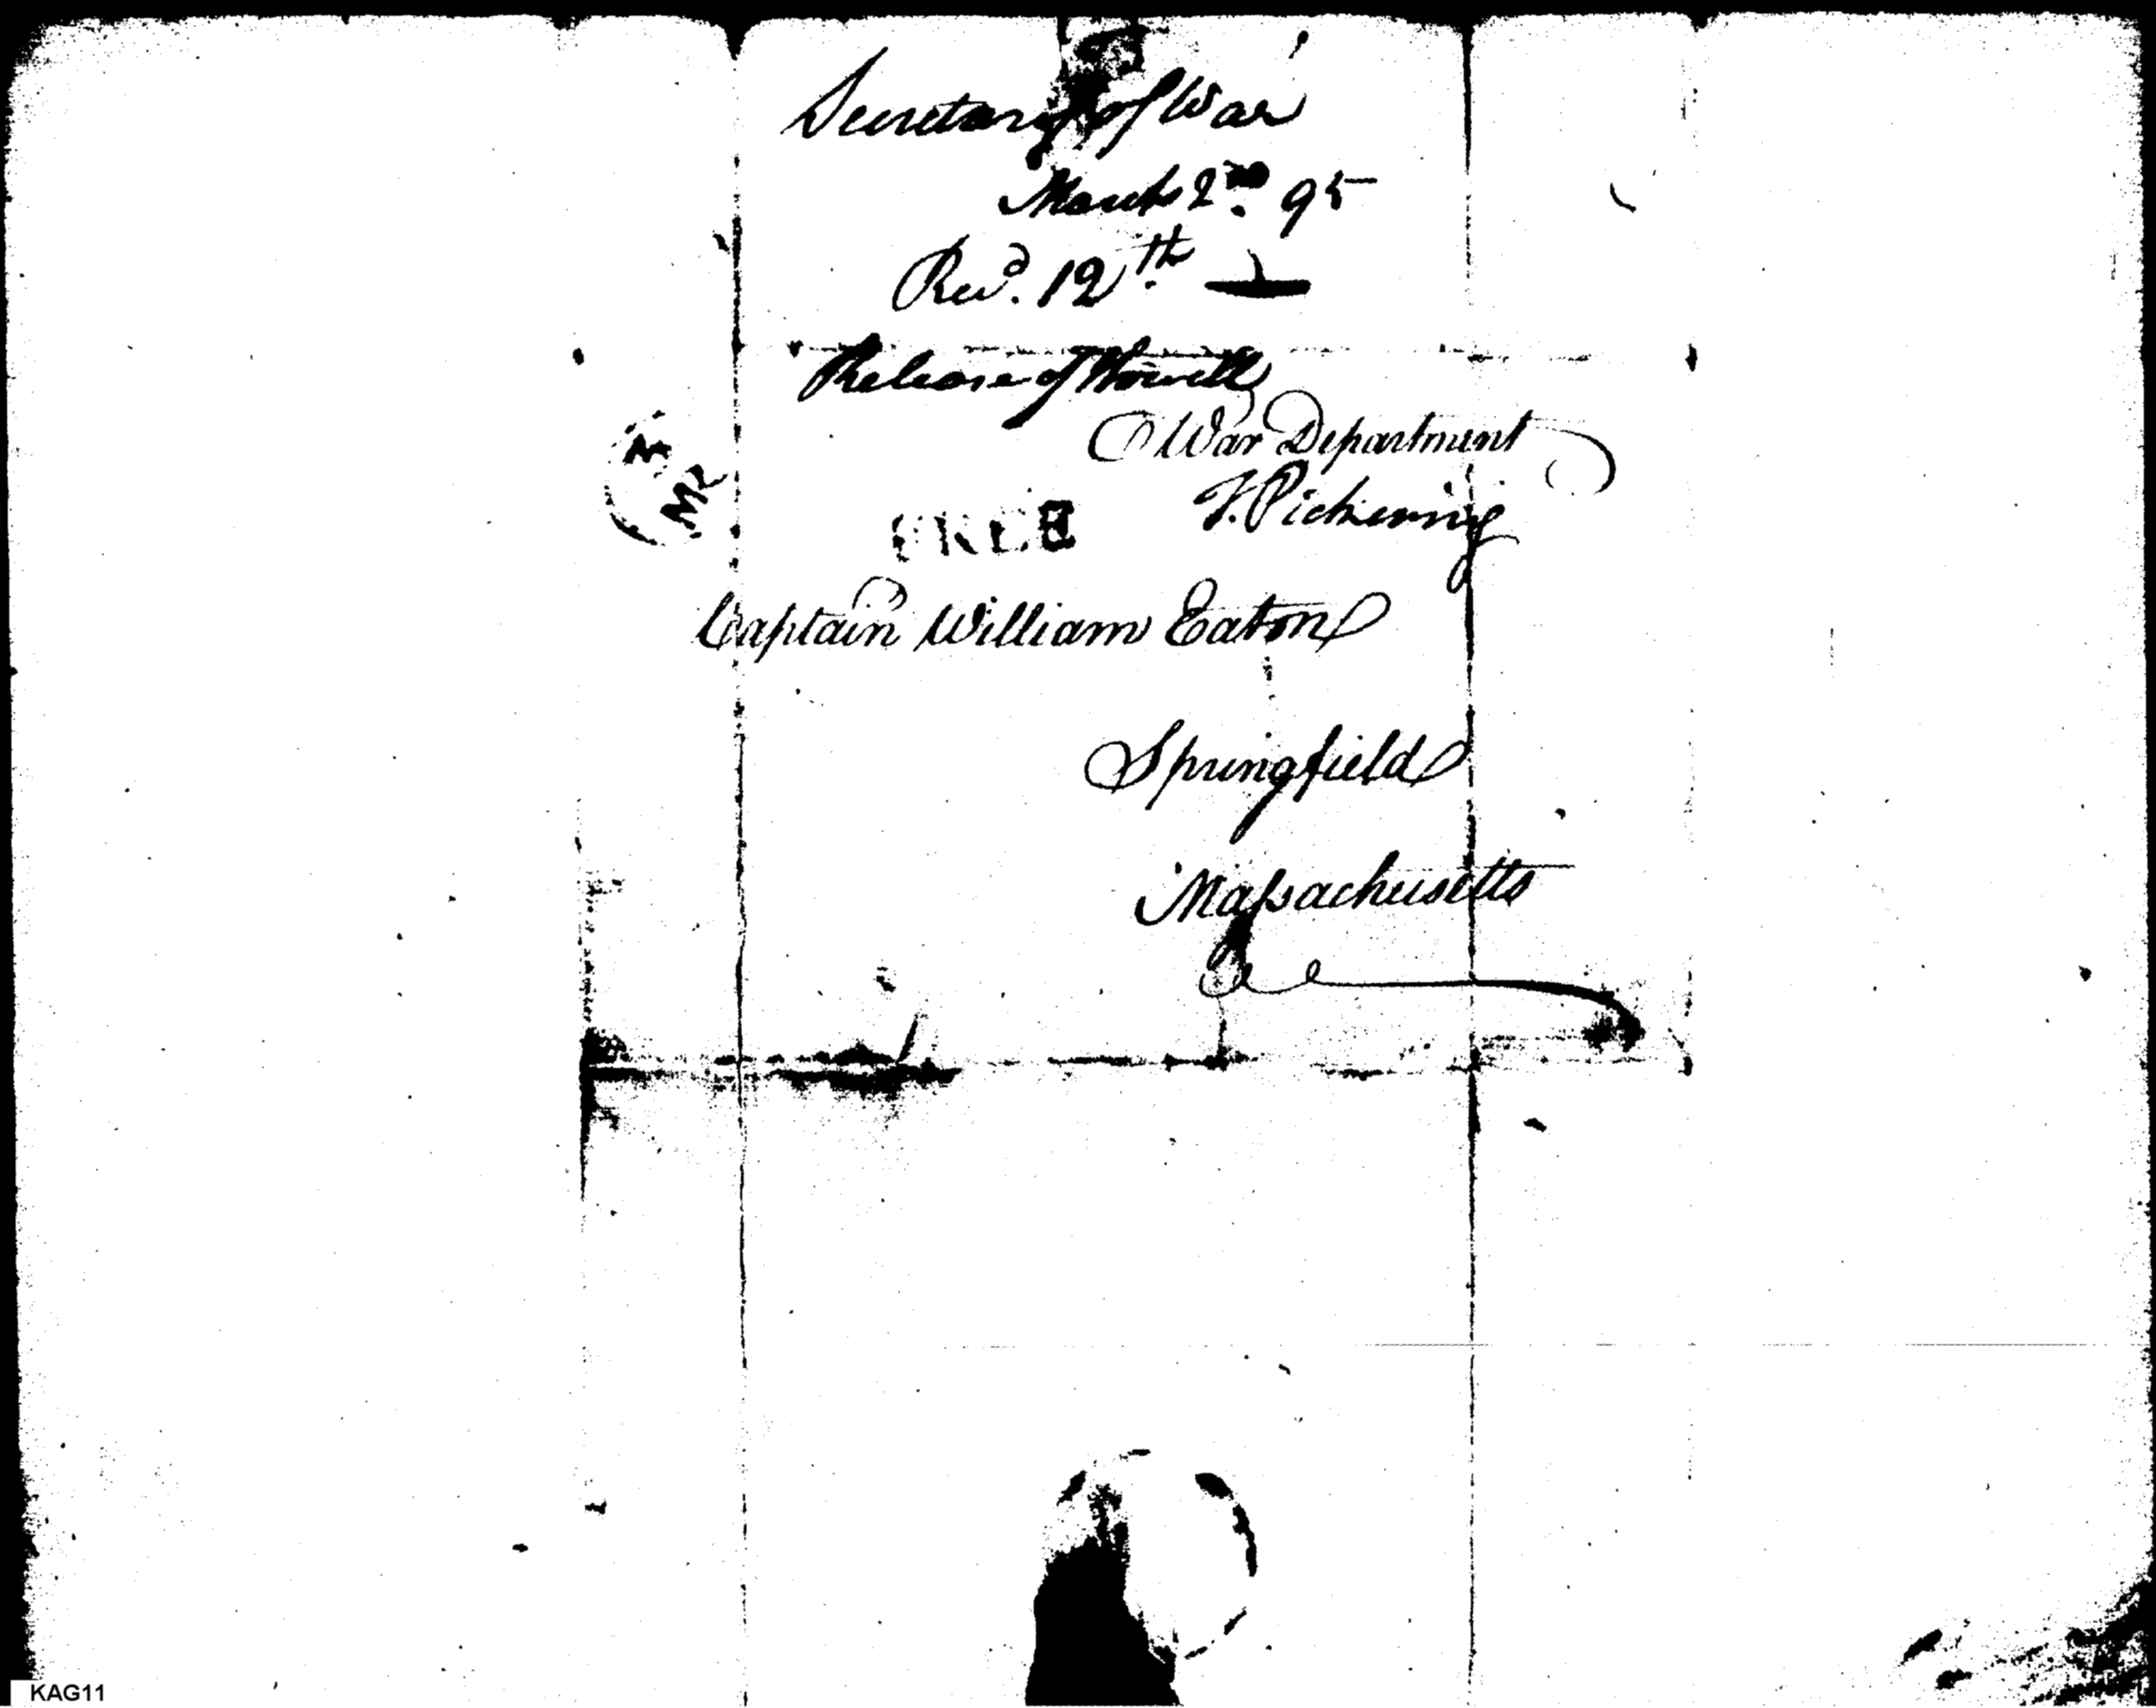 Secretary of War
March 2nd. 95
Recd. 12th.
Release of
War Department
T. Pickering
FREE
MR
Captain William Eaton
Springfield
Massachusetts
KAG11